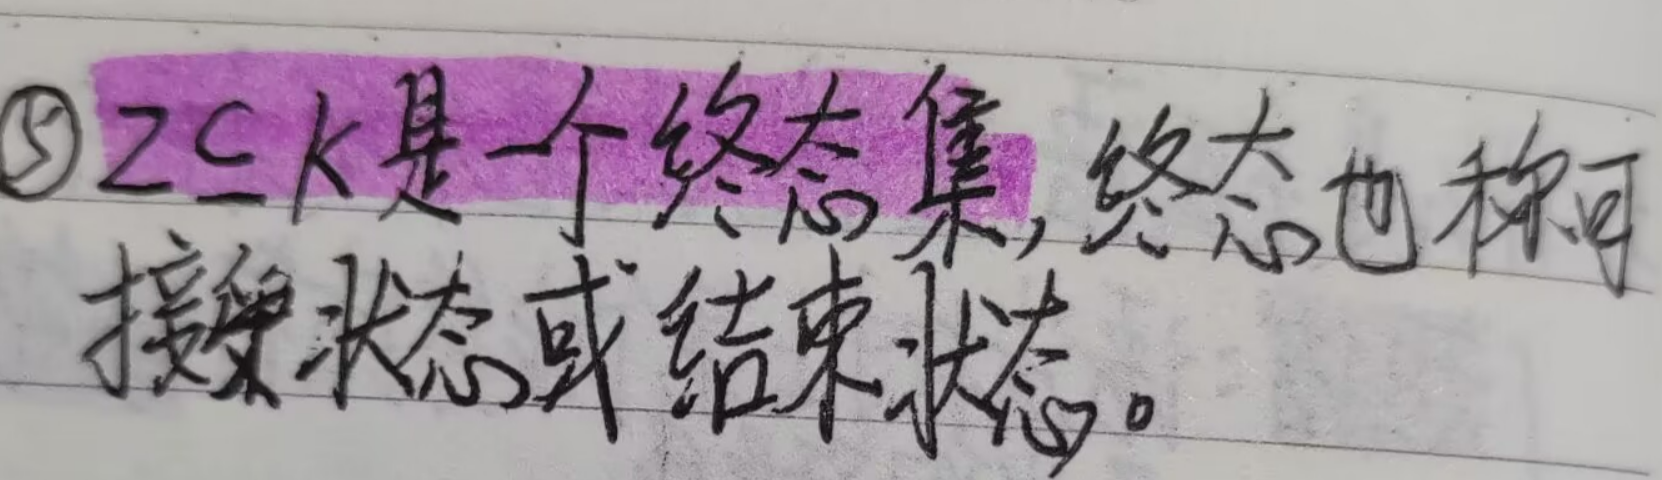 ⑤Z⊆K是一个终态集,终态也称可
接受状态或结束状态。